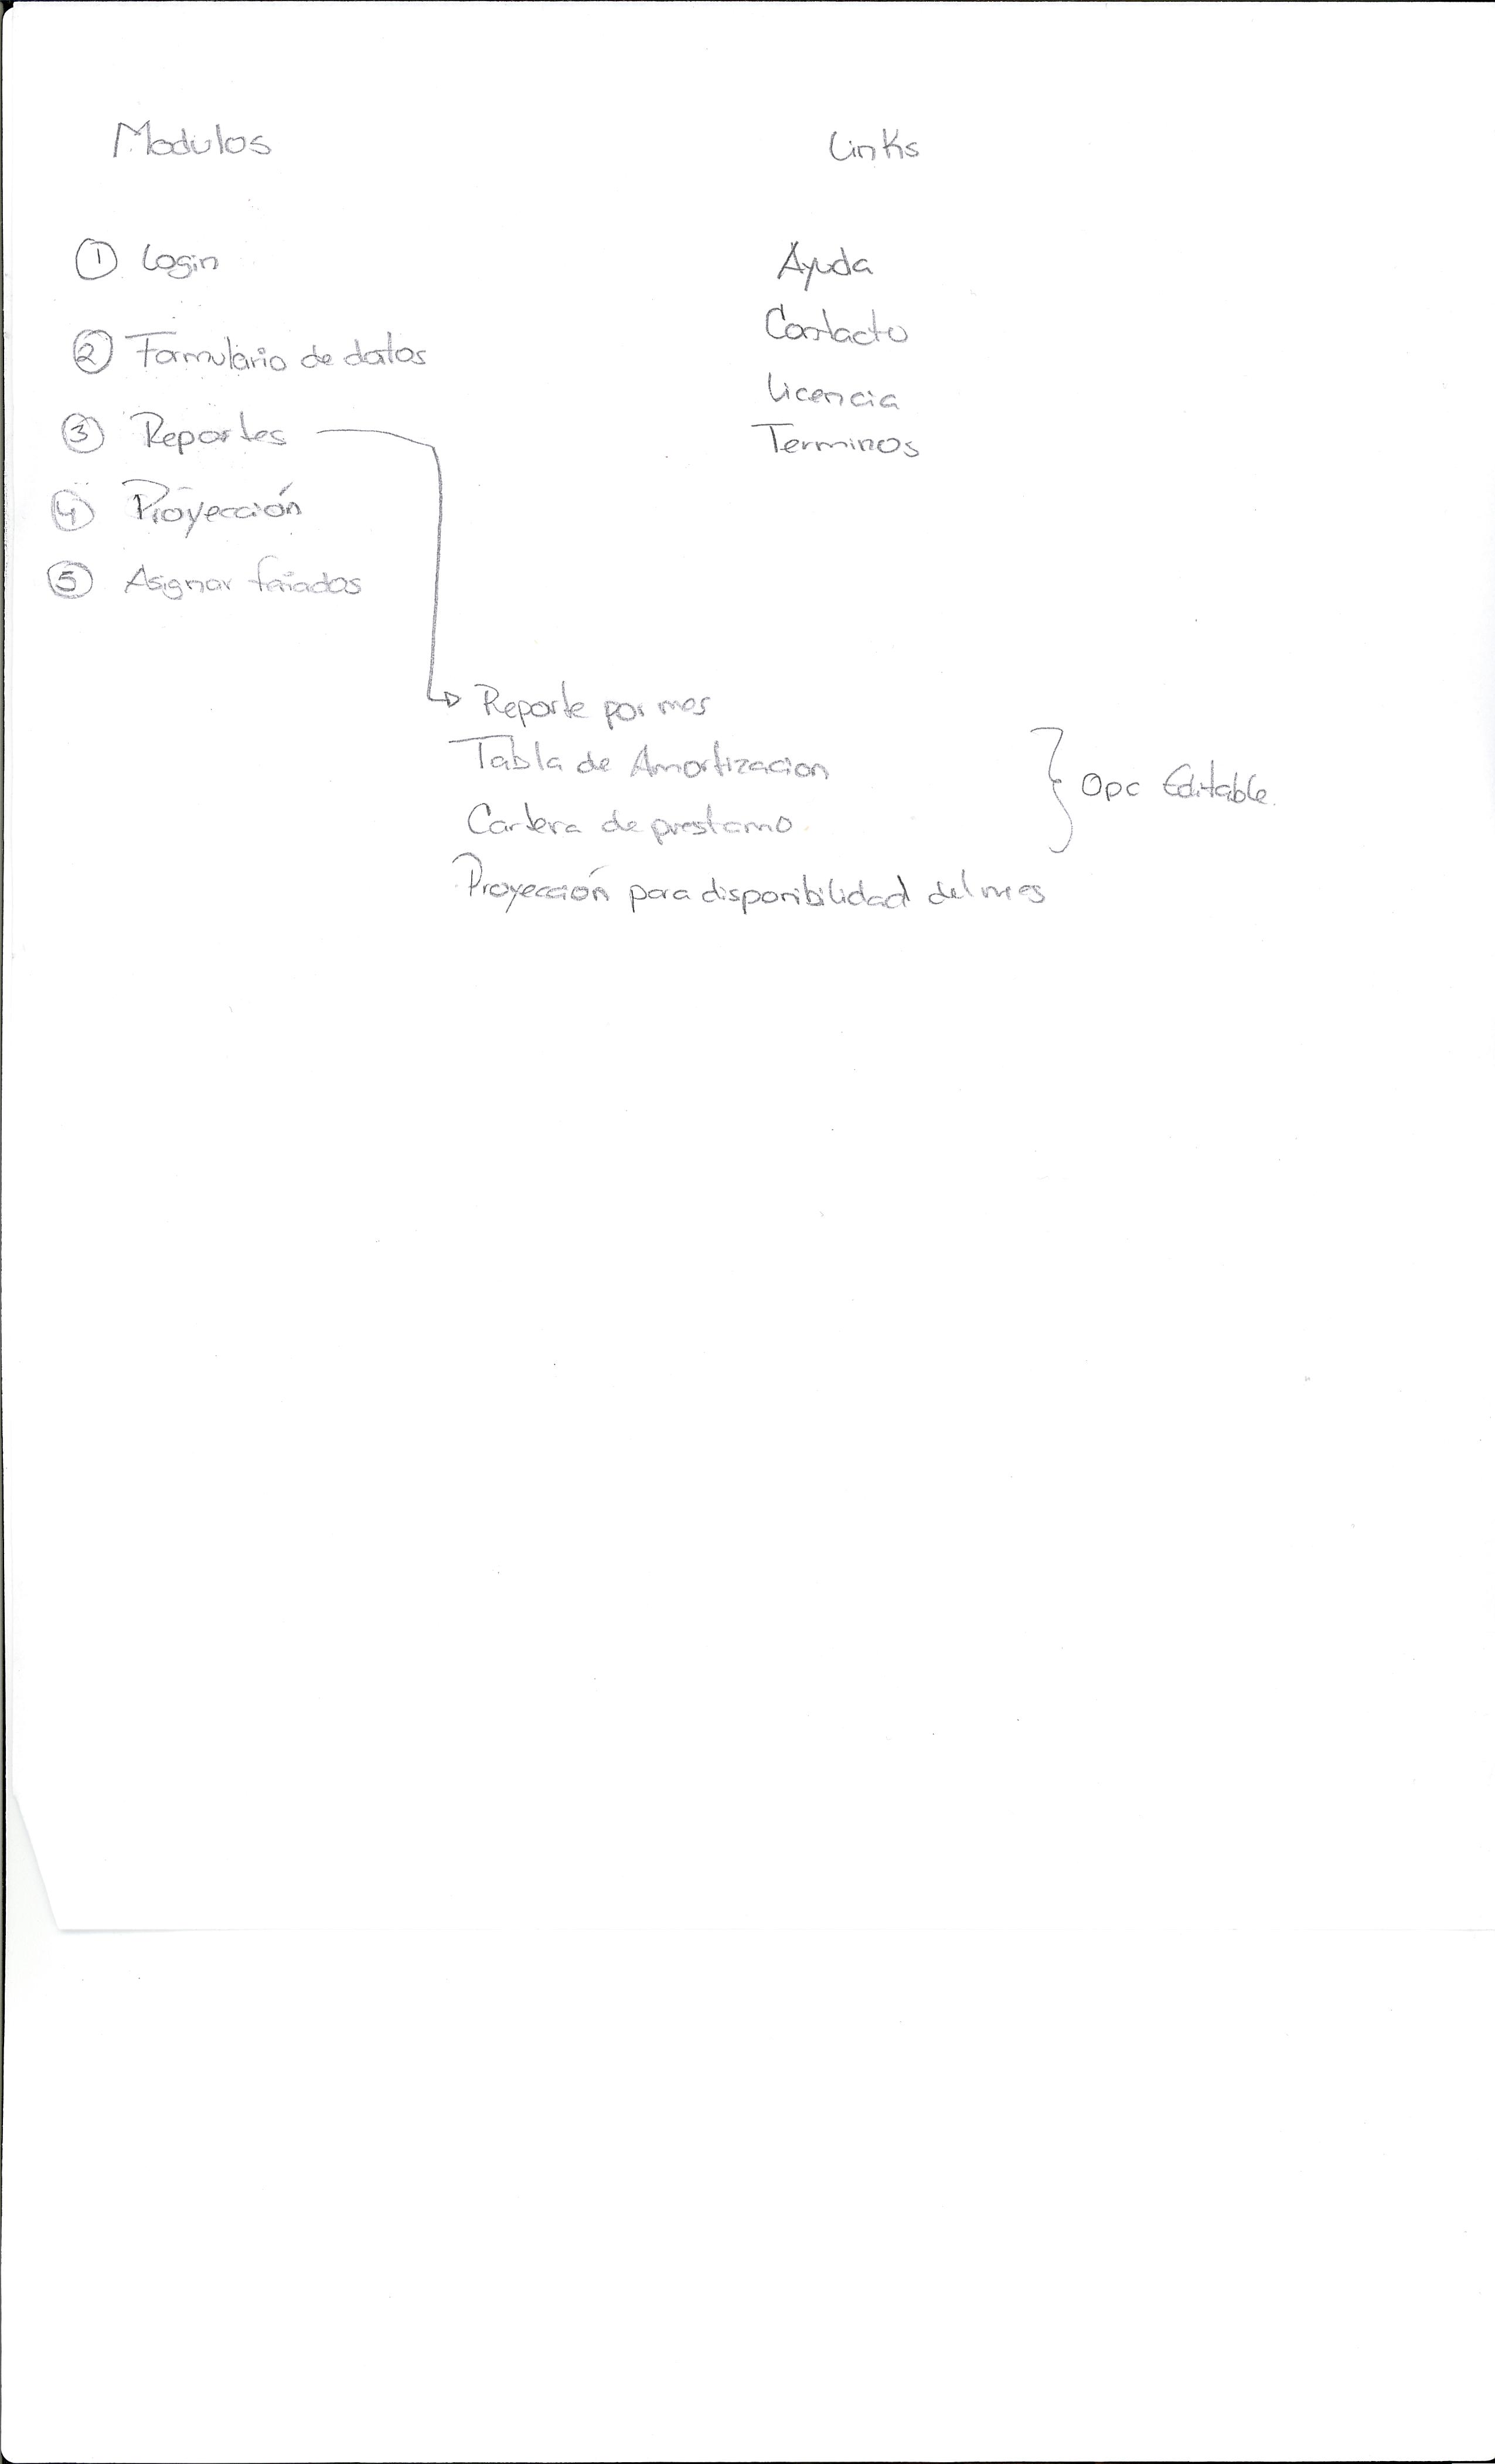 Modulos
① Login
② Formulario de datos
③ Reportes
④ Proyección
⑤ Asignar feriados
Links
Ayuda
Contacto
Licencia
Terminos
Reporte por mes
Tabla de Amortizacion
Cartera de prestamo
Proyección para disponibilidad del mes
Opc Editable.